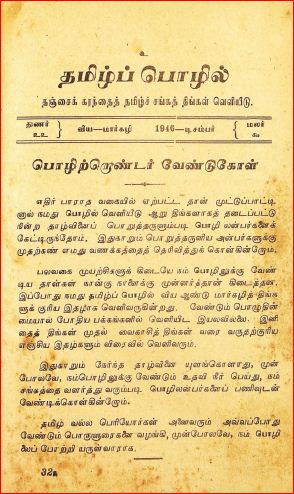 உ
தமிழ்ப் பொழில்
தஞ்சைக் கரந்தைத் தமிழ்ச் சங்கத் திங்கள் வெளியீடு.
துணர் உஉ } விய—மார்கழி 1946—டிசம்பர் { மலர் ௯
பொழிற்றொண்டர் வேண்டுகோள்
எதிர் பாராத வகையில் ஏற்பட்ட தாள் முட்டுப்பாட்டி
னால் நமது பொழில் வெளியீடு ஆறு திங்களாகத் தடைப்பட்டு
நின்ற தாழ்வினைப் பொறுத்தருளும்படி பொழி லன்பர்களைக்
கேட்டிருந்தோம். இதுகாறும் பொறுத்தருளிய அன்பர்களுக்கு
முதற்கண் எமது வணக்கத்தைத் தெரிவித்துக் கொள்கின்றோம்.
பலவகை முயற்சிகளுக் கிடையே நம் பொழிலுக்கு வேண்
டிய தாள்கள் நான்கு நாளைக்கு முன்னர்த்தான் கிடைத்தன.
இப்போது நமது தமிழ்ப் பொழில் விய ஆண்டு மார்கழித் திங்களு
க்குரிய இதழாகக் வெளிவருகின்றது. வேண்டும் பொழுதின்
மையால் போதிய பக்கங்களில் வெளியிட இயலவில்லை. இனி
தைத் திங்கள் முதல் வைகாசித் திங்கள் வரை வருதற்குரிய
எஞ்சிய இதழ்களும் விரைவில் வெளிவரும்.
இதுகாறும் நேர்ந்த தாழ்வினை யுளங்கொளாது, முன்
போலவே, நம்பொழிலுக்கு வேண்டும் உதவி நீர் பெய்து, நம்
சங்கத்தை வளர்த்து வரும்படி பொழிலன்பர்களைப் பணிவுடன்
வேண்டிக்கொள்கின்றோம்.
தமிழ் வல்ல பெரியோர்கள் அனைவரும் அவ்வப்போது
வேண்டும் பொருளுரைகளை வழங்கி, முன்போலவே, நம் பொழி
லைப் போற்றி யருள்வாராக.
32௩